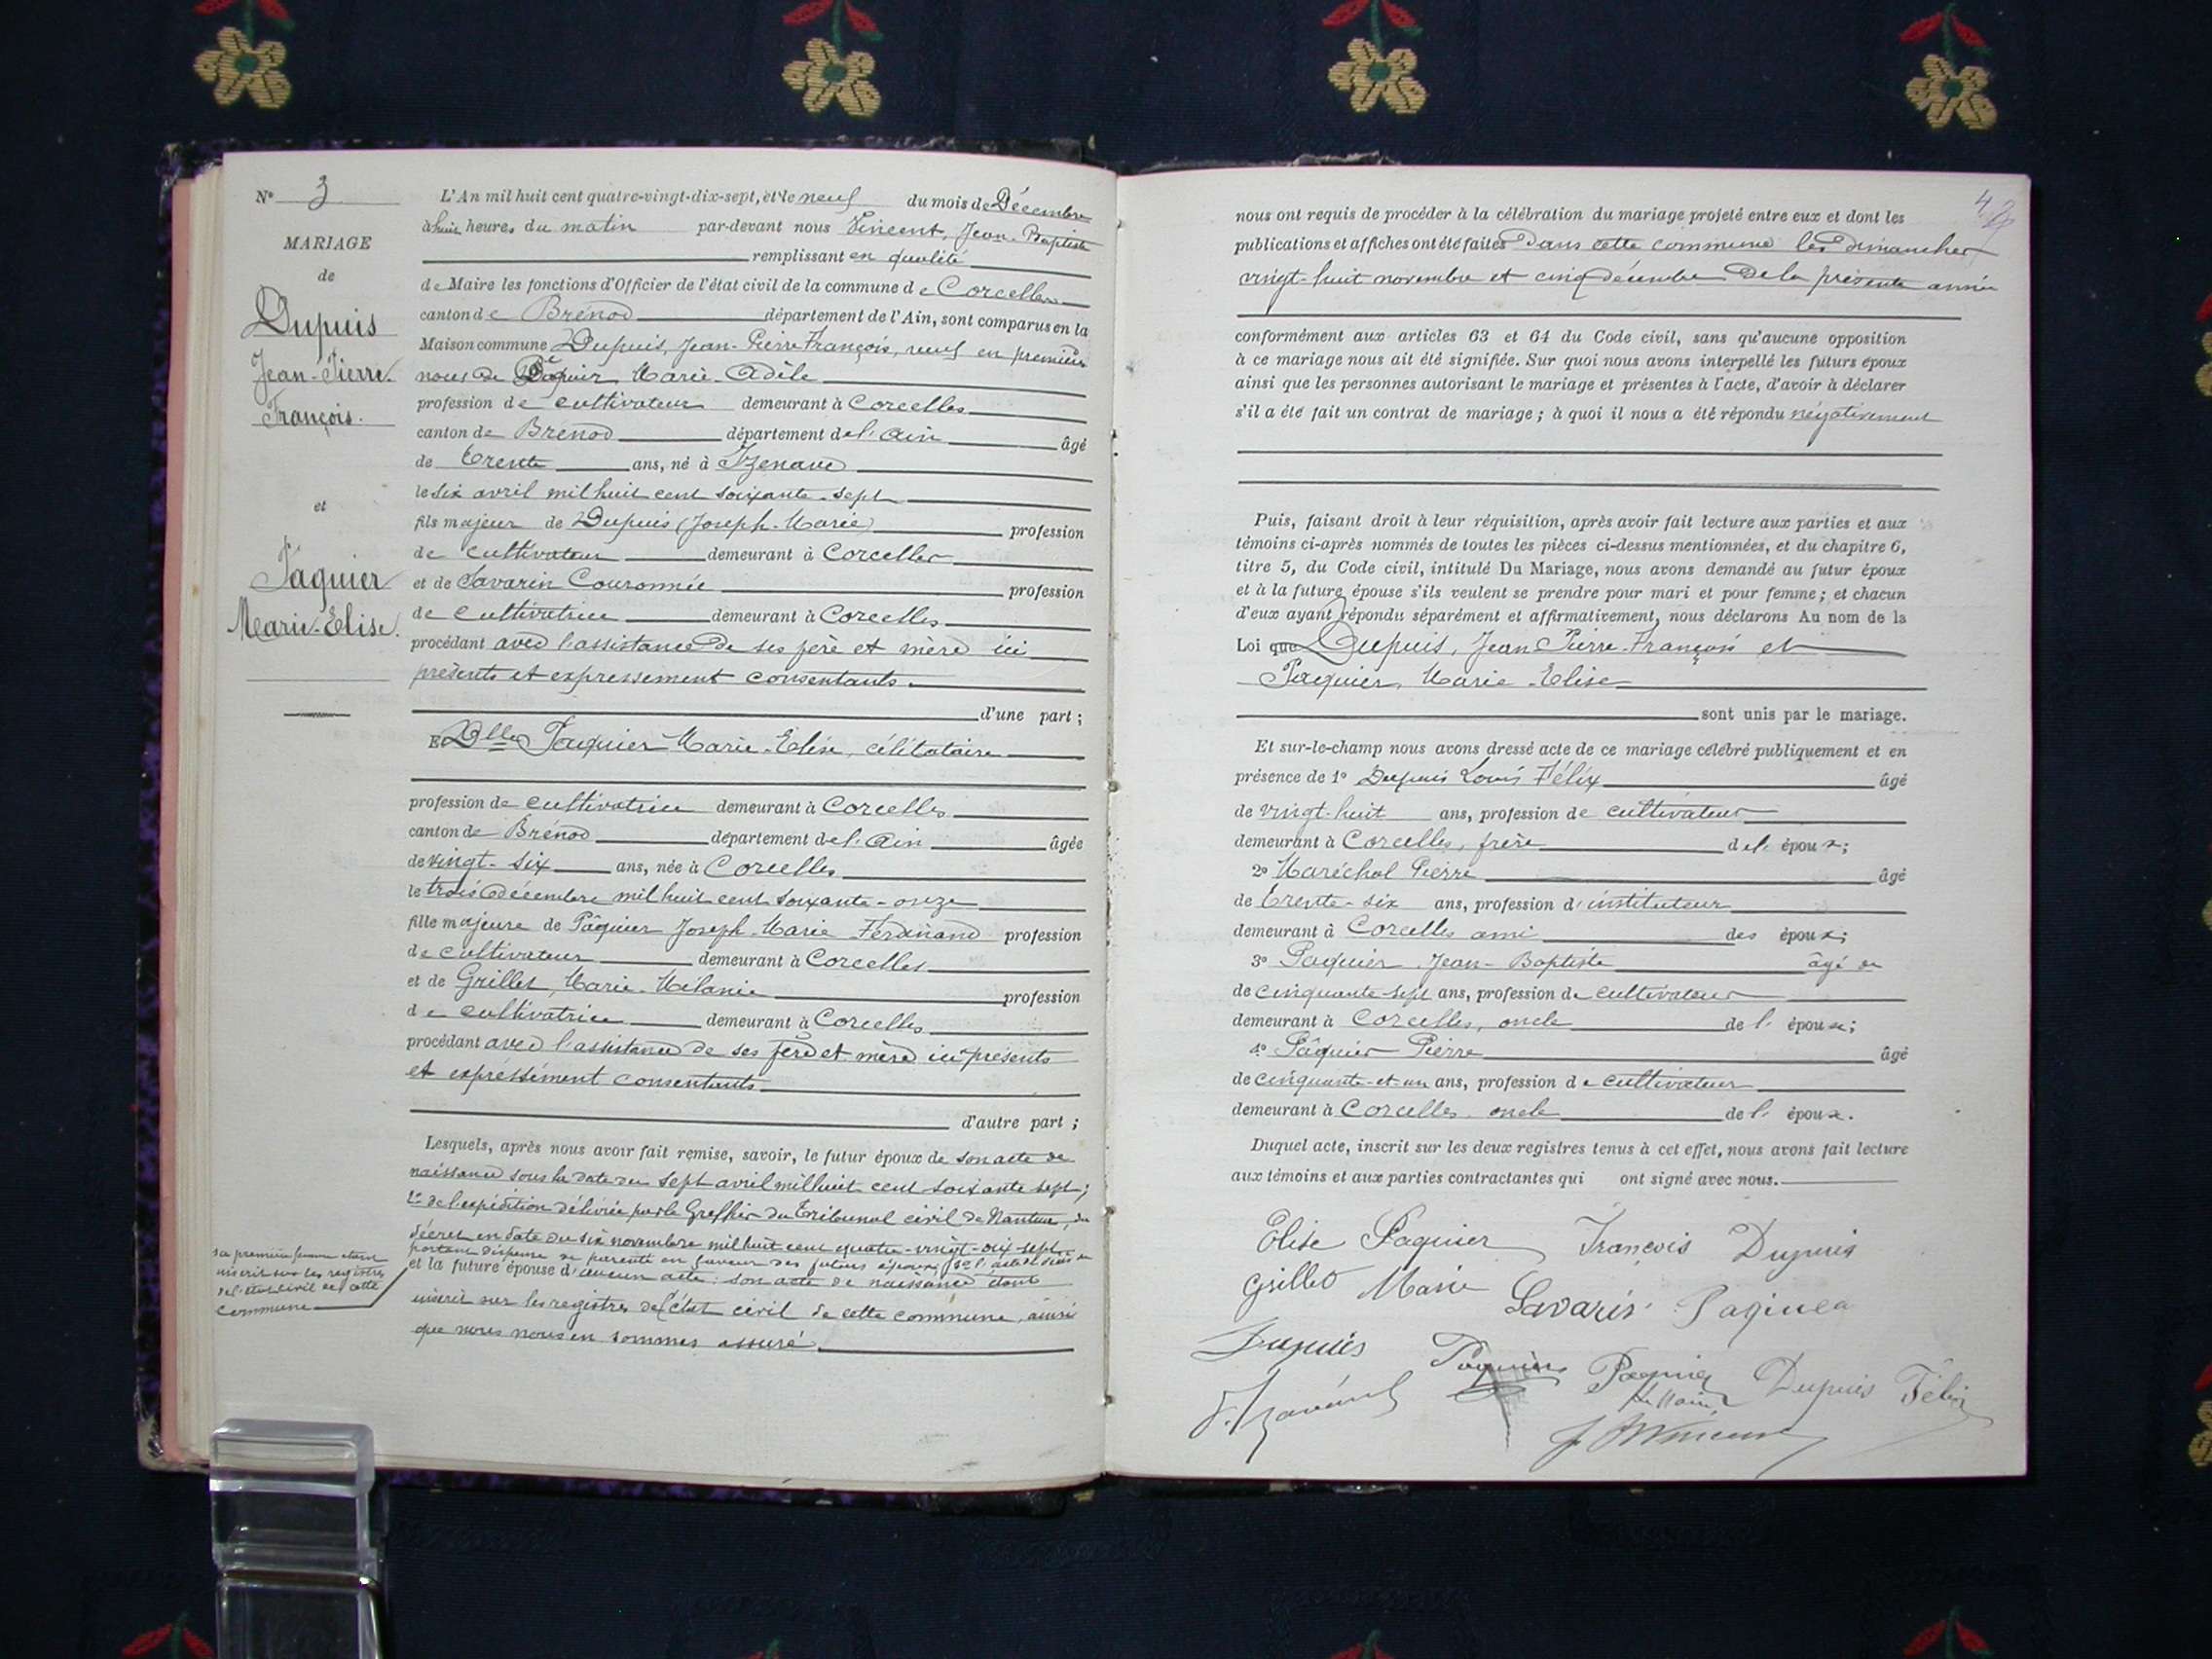 N° 3
MARIAGE
de
Dupuis
Jean-Pierre
François.
et
Pâquier
Marie-Elise.
L'An mil huit cent quatre-vingt-dix-sept, et le neuf du mois de Décembre
à huit heures du matin par-devant nous Vincent, Jean-Baptiste
remplissant en qualité
de Maire les fonctions d'Officier de l'état civil de la commune de Corcelles
canton de Brénod département de l'Ain, sont comparus en la
Maison commune Dupuis, Jean-Pierre François, veuf en premières
noces de Pâquier Marie-Adèle
profession de cultivateur demeurant à Corcelles
canton de Brénod département de l'Ain âgé
de trente ans, né à Izenave
le six avril mil huit cent soixante-sept
fils majeur de Dupuis (Joseph-Marie) profession
de cultivateur demeurant à Corcelles
et de Savarin Couronnée profession
de cultivatrice demeurant à Corcelles
procédant avec l'assistance de ses père et mère ici
présents et expressément consentants.
d'une part ;
Et Dlle Pâquier Marie-Elise, célibataire
profession de cultivatrice demeurant à Corcelles
canton de Brénod département de l'Ain âgée
de vingt-six ans, née à Corcelles
le trois décembre mil huit cent soixante-onze
fille majeure de Pâquier Joseph-Marie Ferdinand profession
de cultivateur demeurant à Corcelles
et de Grillet, Marie-Mélanie profession
de cultivatrice demeurant à Corcelles
procédant avec l'assistance de ses père et mère ici présents
et expressément consentants
d'autre part ;
Lesquels, après nous avoir fait remise, savoir, le futur époux de son acte de
naissance sous la date du sept avril mil huit cent soixante sept ;
2° de l'expédition délivrée par le Greffier du Tribunal civil de Nantua, du
décret en date du six novembre mil huit cent quatre-vingt-dix-sept
portant dispense de parenté en faveur des futurs époux, 3° l'acte de décès de
sa première femme étant
inscrit sur les registres
de l'état civil de cette
commune
et la future épouse d'aucun acte : son acte de naissance étant
inscrit sur les registres de l'état civil de cette commune, ainsi
que nous nous en sommes assuré.
42
nous ont requis de procéder à la célébration du mariage projeté entre eux et dont les
publications et affiches ont été faites dans cette commune les dimanches
vingt-huit novembre et cinq décembre de la présente année
conformément aux articles 63 et 64 du Code civil, sans qu'aucune opposition
à ce mariage nous ait été signifiée. Sur quoi nous avons interpellé les futurs époux
ainsi que les personnes autorisant le mariage et présentes à l'acte, d'avoir à déclarer
s'il a été fait un contrat de mariage ; à quoi il nous a été répondu négativement
Puis, faisant droit à leur réquisition, après avoir fait lecture aux parties et aux
témoins ci-après nommés de toutes les pièces ci-dessus mentionnées, et du chapitre 6,
titre 5, du Code civil, intitulé Du Mariage, nous avons demandé au futur époux
et à la future épouse s'ils veulent se prendre pour mari et pour femme ; et chacun
d'eux ayant répondu séparément et affirmativement, nous déclarons Au nom de la
Loi que Dupuis, Jean Pierre-François et
Pâquier, Marie-Elise
sont unis par le mariage.
Et sur-le-champ nous avons dressé acte de ce mariage célébré publiquement et en
présence de 1° Dupuis Louis Félix âgé
de vingt-huit ans, profession de cultivateur
demeurant à Corcelles, frère de l'époux ;
2° Maréchal Pierre âgé
de trente-six ans, profession d'instituteur
demeurant à Corcelles ami des époux ;
3° Pâquier Jean-Baptiste âgé de
de cinquante-sept ans, profession de cultivateur
demeurant à Corcelles, oncle de l'époux ;
4° Pâquier Pierre âgé
de cinquante-et-un ans, profession de cultivateur
demeurant à Corcelles oncle de l'époux.
Duquel acte, inscrit sur les deux registres tenus à cet effet, nous avons fait lecture
aux témoins et aux parties contractantes qui ont signé avec nous.
Elise Paquier François Dupuis
Grillet Marie Savarin Paquier
Dupuis Paquier Paquier Dupuis Félix